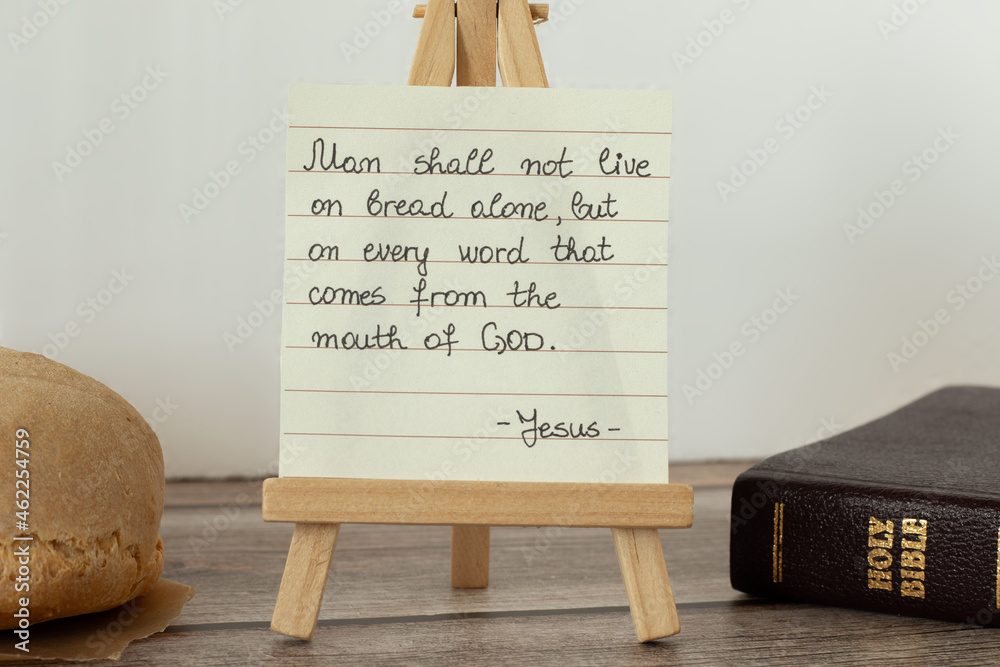 Man shall not live
on bread alone, but
on every word that
comes from the
mouth of God.
- Jesus -
HOLY
BIBLE
Adobe Stock | #462254759